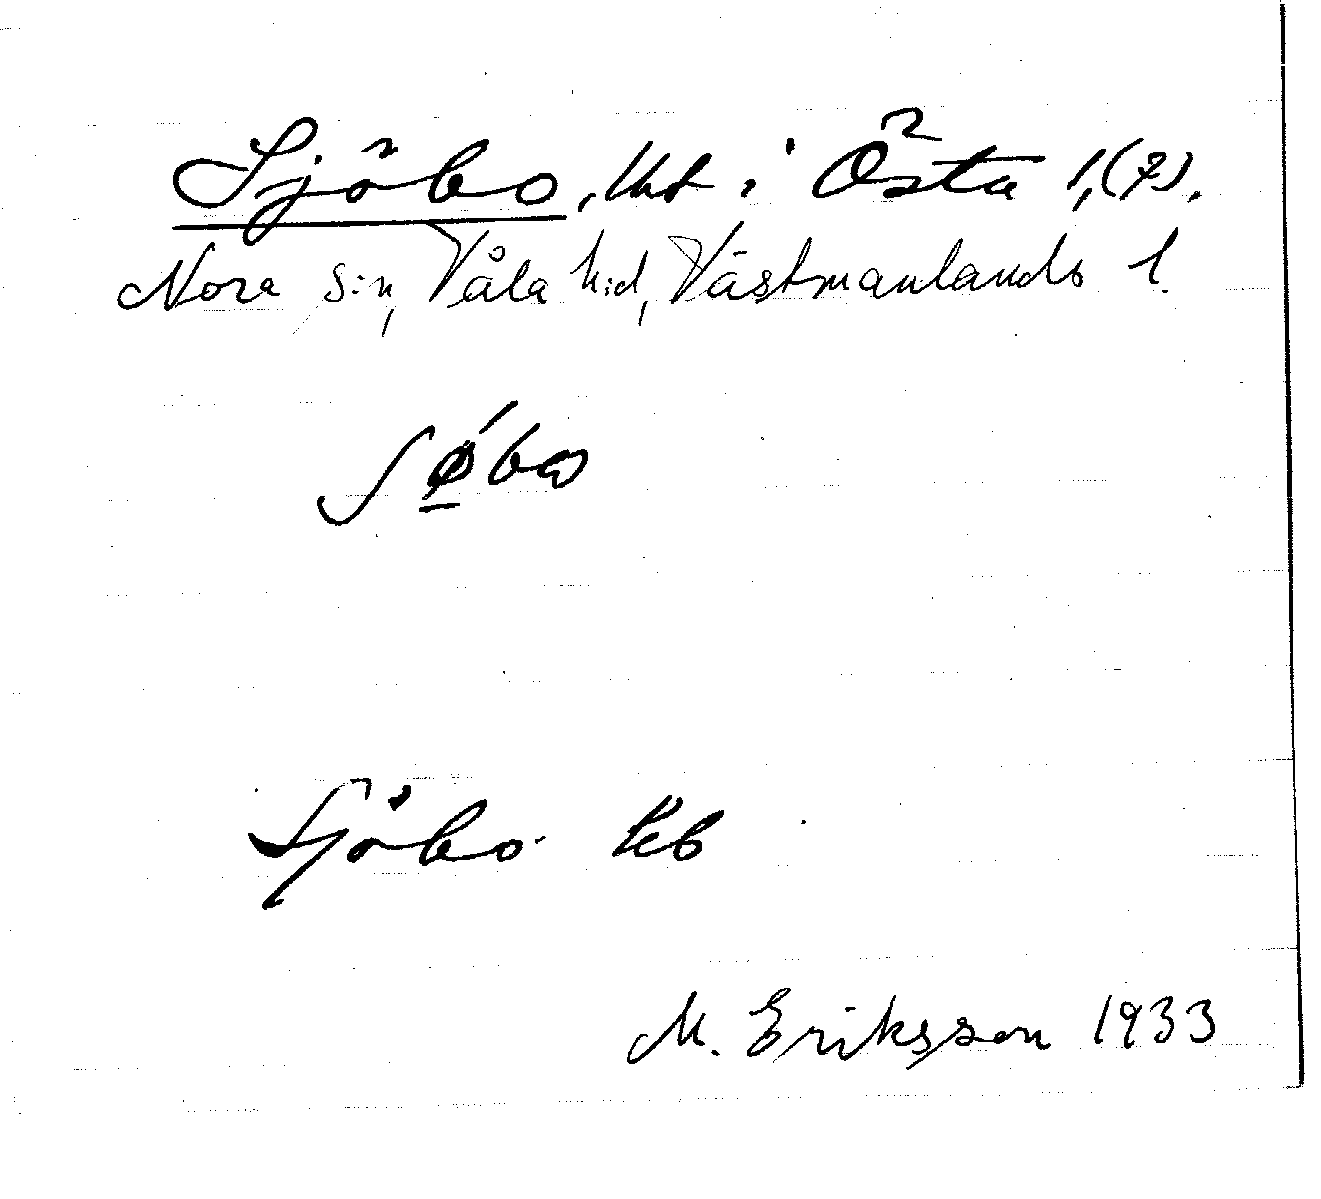 Sjöbo, lht i Östa 1,(7).
Nora s:n, Våla h:d, Västmanlands l.
Sjöbo
M. Eriksson 1933